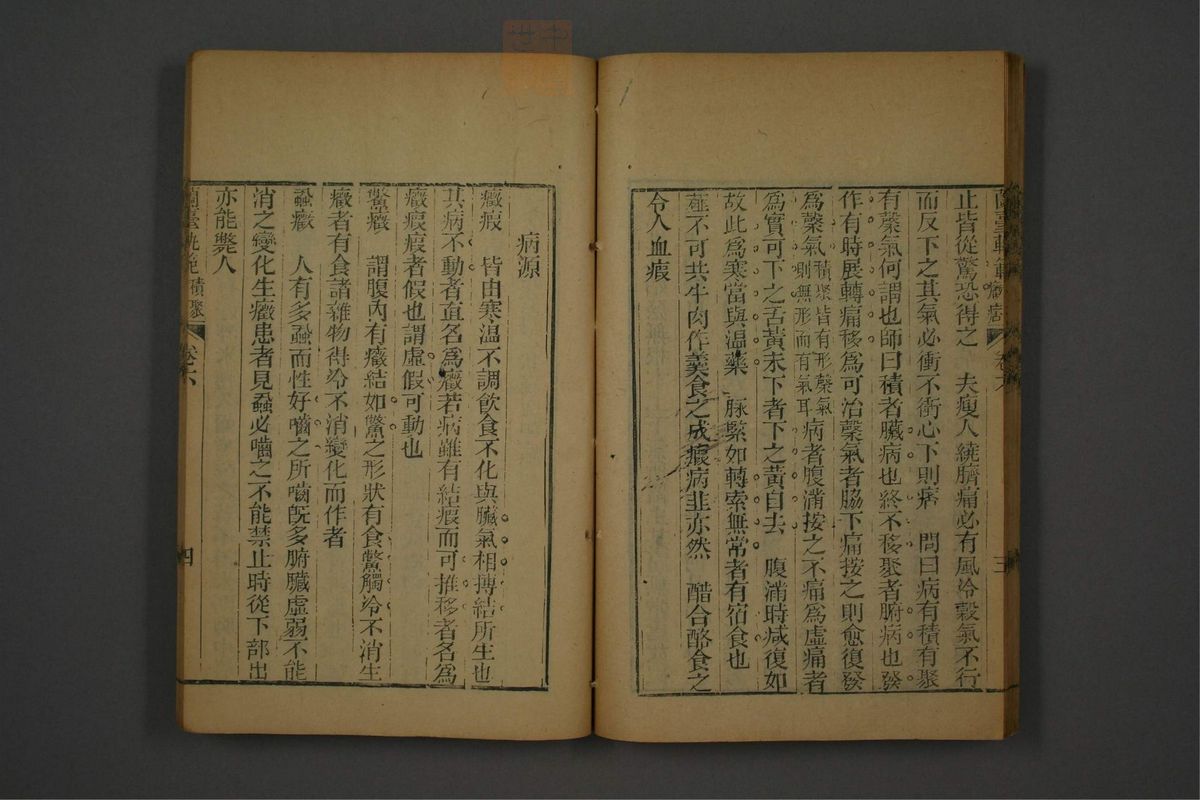 止皆從驚恐得之　夫瘦人繞臍痛必有風冷穀氣不行
而反下之其氣必衝不衝心下則痞　問曰病有積有聚
有䅽氣何謂也師曰積者臟病也終不移聚者腑病也發
作有時展轉痛移為可治䅽氣者脇下痛按之則愈復發
為䅽氣積聚皆有形䅽氣則無形而有氣耳病者腹滿按之不痛為虛痛者
為實可下之舌黃未下者下之黃自去　腹滿時减復如
故此為寒當與温藥　脉緊如轉索無常者有宿食也
薤不可共牛肉作羹食之成瘕病韭亦然　醋合酪食之
令人血瘕
病源
癥瘕　皆由寒温不調飲食不化與臟氣相搏結所生也
其病不動者直名為癥若病雖有結瘕而可推移者名為
癥瘕瘕者假也謂虛假可動也
鱉癥　謂腹內有癥結如鱉之形狀有食鱉觸冷不消生
癥者有食諸雜物得冷不消變化而作者
蝨癥　人有多蝨而性好嚙之所嚙旣多腑臟虛弱不能
消之變化生癥患者見蝨必嚙之不能禁止時從下部出
亦能斃人
積聚
卷六
四